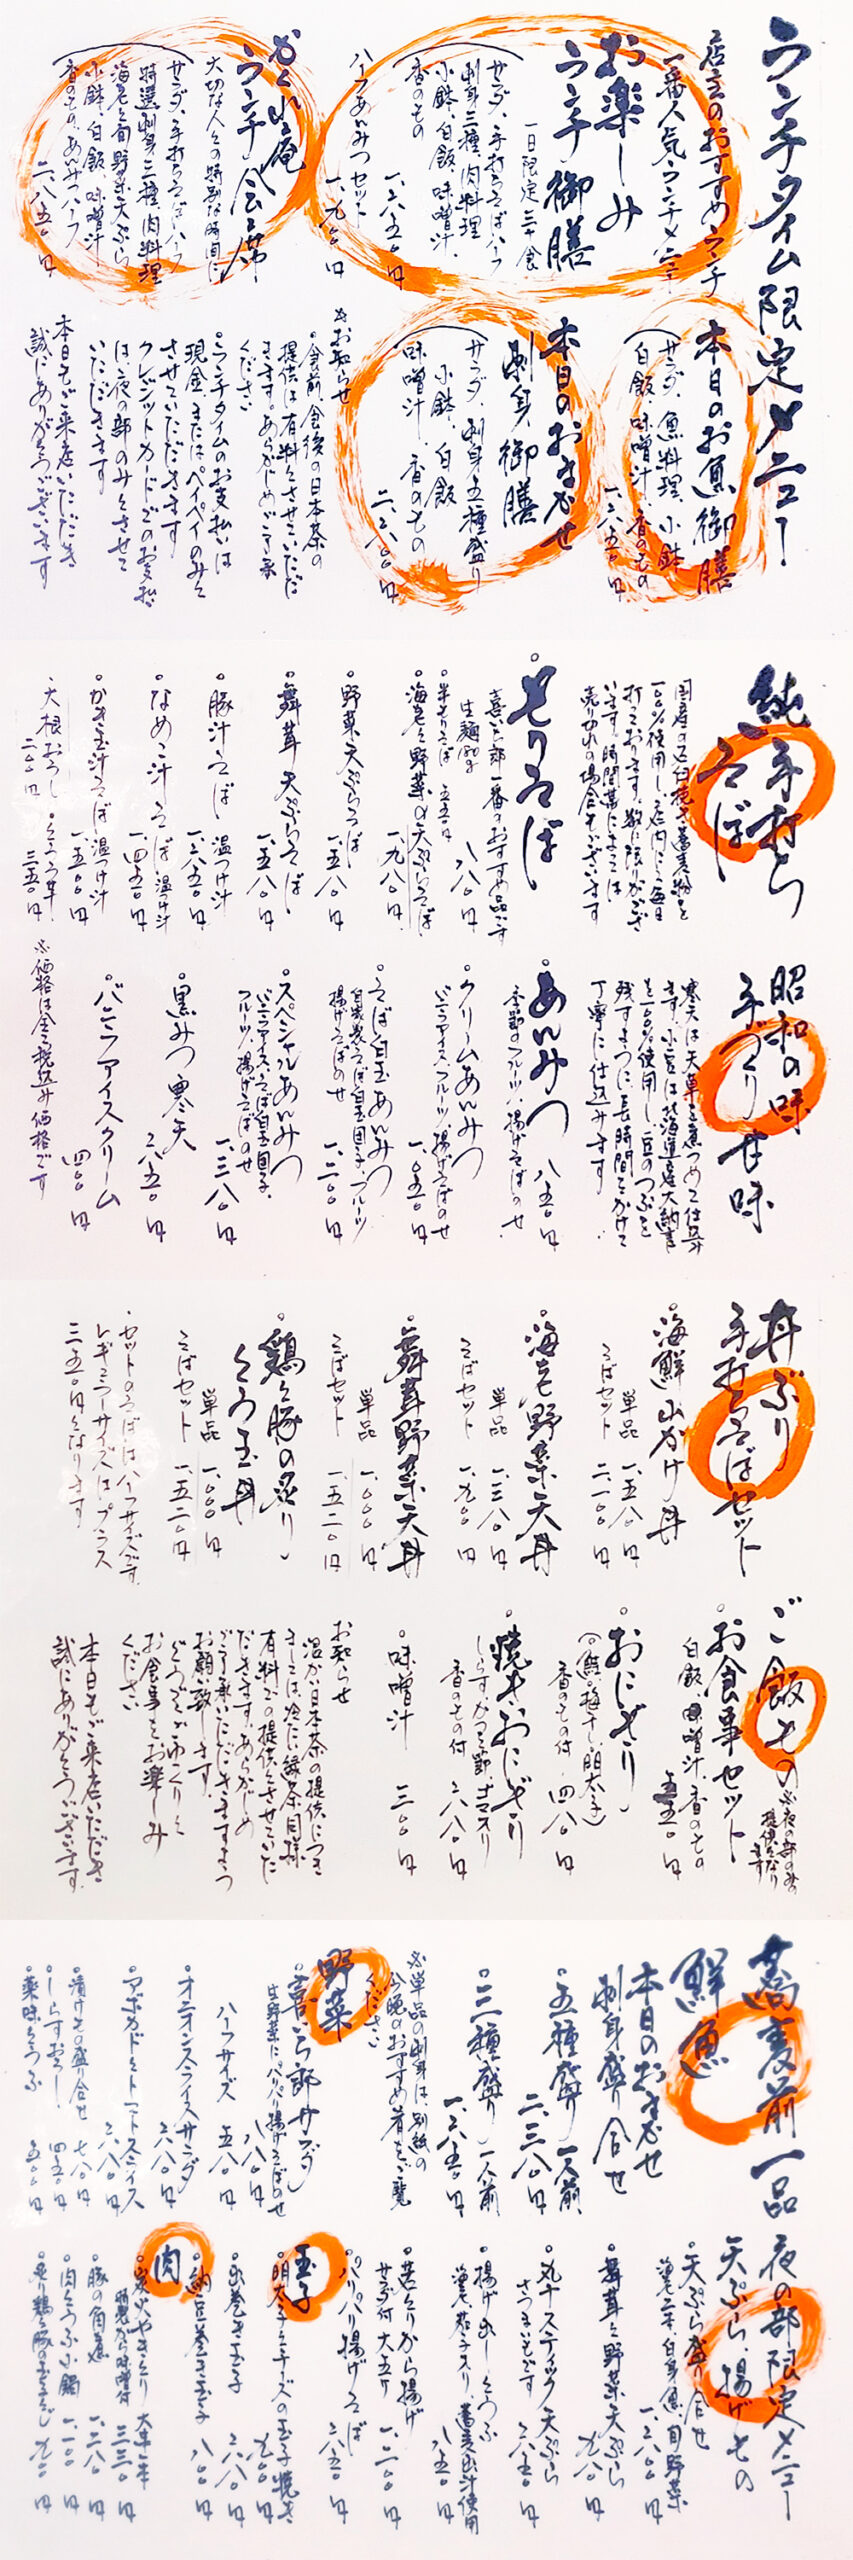 ランチタイム限定メニュー
店主のおすすめランチ
一番人気ランチメニュー
お楽しみ
ランチ御膳
一日限定二十食
サラダ、手打ちそばハーフ
刺身三種、肉料理
小鉢、白飯、味噌汁、
香のもの
一、六五〇円
ハーフあんみつセット
一、九〇〇円
かくれ庵
ランチ会席
大切な人との特別な時間に
サラダ、手打ちそばハーフ
特選刺身三種、肉料理
海老と旬野菜天ぷら
小鉢、白飯、味噌汁
香のもの、あんみつハーフ
二、八五〇円
本日のお魚御膳
サラダ、魚料理、小鉢
白飯、味噌汁、香のもの
一、六五〇円
本日のおまかせ
刺身御膳
サラダ、刺身五種盛り
小鉢、白飯
味噌汁、香のもの
二、六八〇円
※お知らせ
○食前、食後の日本茶の
提供は有料とさせていただ
きます。あらかじめご了承
ください
○ランチタイムのお支払いは
現金、またはペイペイのみと
させていただきます
クレジットカードでのお支払い
は夜の部のみとさせて
いただきます
本日もご来店いただき
誠にありがとうございます
純手打ち
そば
国産の石臼挽き蕎麦粉を
一〇〇%使用し、店内にて毎日
打っております。数に限りがござ
います。時間帯によっては
売り切れの場合もございます
○もりそば
喜三郎一番のおすすめ品です
生麺
八八〇円
○半もりそば 五五〇円
○海老と野菜の天ぷらそば
一、九八〇円
○野菜天ぷらそば
一、五八〇円
○舞茸天ぷらそば
一、五八〇円
○豚汁そば 温つけ汁
一、六五〇円
○なめこ汁そば 温つけ汁
一、四五〇円
○かき玉汁そば 温つけ汁
一、五〇〇円
・大根おろし 二〇〇円
・とろろ芋 三五〇円
昭和の味
手づくり甘味
寒天は天草を煮つめて仕込み
ます。小豆は北海道産大納言
を一〇〇%使用し、豆のつぶを
残すように、長時間をかけて
丁寧に仕込みます
○あんみつ 八五〇円
季節のフルーツ、揚げそばのせ
○クリームあんみつ
バニラアイス、フルーツ、揚げそばのせ
一、〇五〇円
○そば白玉あんみつ
自家製そば白玉団子、フルーツ
揚げそばのせ
一、二〇〇円
○スペシャルあんみつ
バニラアイス、そば白玉団子、
フルーツ、揚げそばのせ
一、三八〇円
○黒みつ寒天
六五〇円
○バニラアイスクリーム
四〇〇円
※価格は全て税込み価格です
丼ぶり
手打ちそばセット
○海鮮山かけ丼
単品 一、五八〇円
そばセット 二、一〇〇円
○海老野菜天丼
単品 一、三八〇円
そばセット 一、九〇〇円
○舞茸野菜天丼
単品 一、〇〇〇円
そばセット 一、五二〇円
○鶏と豚の炙り
とろ玉丼
単品 一、〇〇〇円
そばセット 一、五二〇円
・セットのそばはハーフサイズです。
レギュラーサイズは、プラス
三五〇円となります
ご飯もの
※夜の部のみの
提供となり
ます
○お食事セット
白飯、味噌汁、香のもの
五五〇円
○おにぎり
(○鮭○梅干し○明太子)
香のもの付 四八〇円
○焼きおにぎり
しらす、かつお節、ゴマ入り
香のもの付 六八〇円
○味噌汁 三〇〇円
お知らせ
温かい日本茶の提供につき
ましては、冷たい緑茶同様
有料での提供とさせていた
だきます。あらかじめ
ご了承いただきますよう
お願い致します。
どうぞごゆっくりと
お食事をお楽しみ
ください
本日もご来店いただき
誠にありがとうございます。
蕎麦前一品
鮮魚
本日のおまかせ
刺身盛り合せ
○五種盛り 一人前
二、三八〇円
○三種盛り 一人前
一、六五〇円
※単品の刺身は、別紙の
今晩のおすすめ肴をご覧
ください
野菜
○喜三郎サラダ
生野菜に、パリパリ揚げそばのせ
八八〇円
ハーフサイズ 五八〇円
○オニオンスライスサラダ
六八〇円
○アボカドとトマトスライス
六八〇円
○漬けもの盛り合せ 七八〇円
○しらすおろし 四五〇円
○薬味とうふ 五〇〇円
夜の部限定メニュー
天ぷら、揚げもの
○天ぷら盛り合せ
海老二本、白身魚、旬野菜
一、六八〇円
○舞茸と野菜天ぷら
九八〇円
○丸十スティック天ぷら
さつまいもです 六五〇円
○揚げ出しとうふ
海老、茄子入り、蕎麦出汁使用
八五〇円
○若どりから揚げ
サラダ付 大五ケ
一、二〇〇円
○パリパリ揚げそば
六五〇円
玉子
○明太子とチーズの玉子焼き
九〇〇円
○出巻き玉子 六八〇円
○納豆巻き玉子 八〇〇円
肉
○炭火やきとり 大串一本
自家製から味噌付 三三〇円
○豚の角煮 一、二八〇円
○肉とうふ小鍋 一、一〇〇円
○炙り鶏と豚の玉子とじ 九八〇円